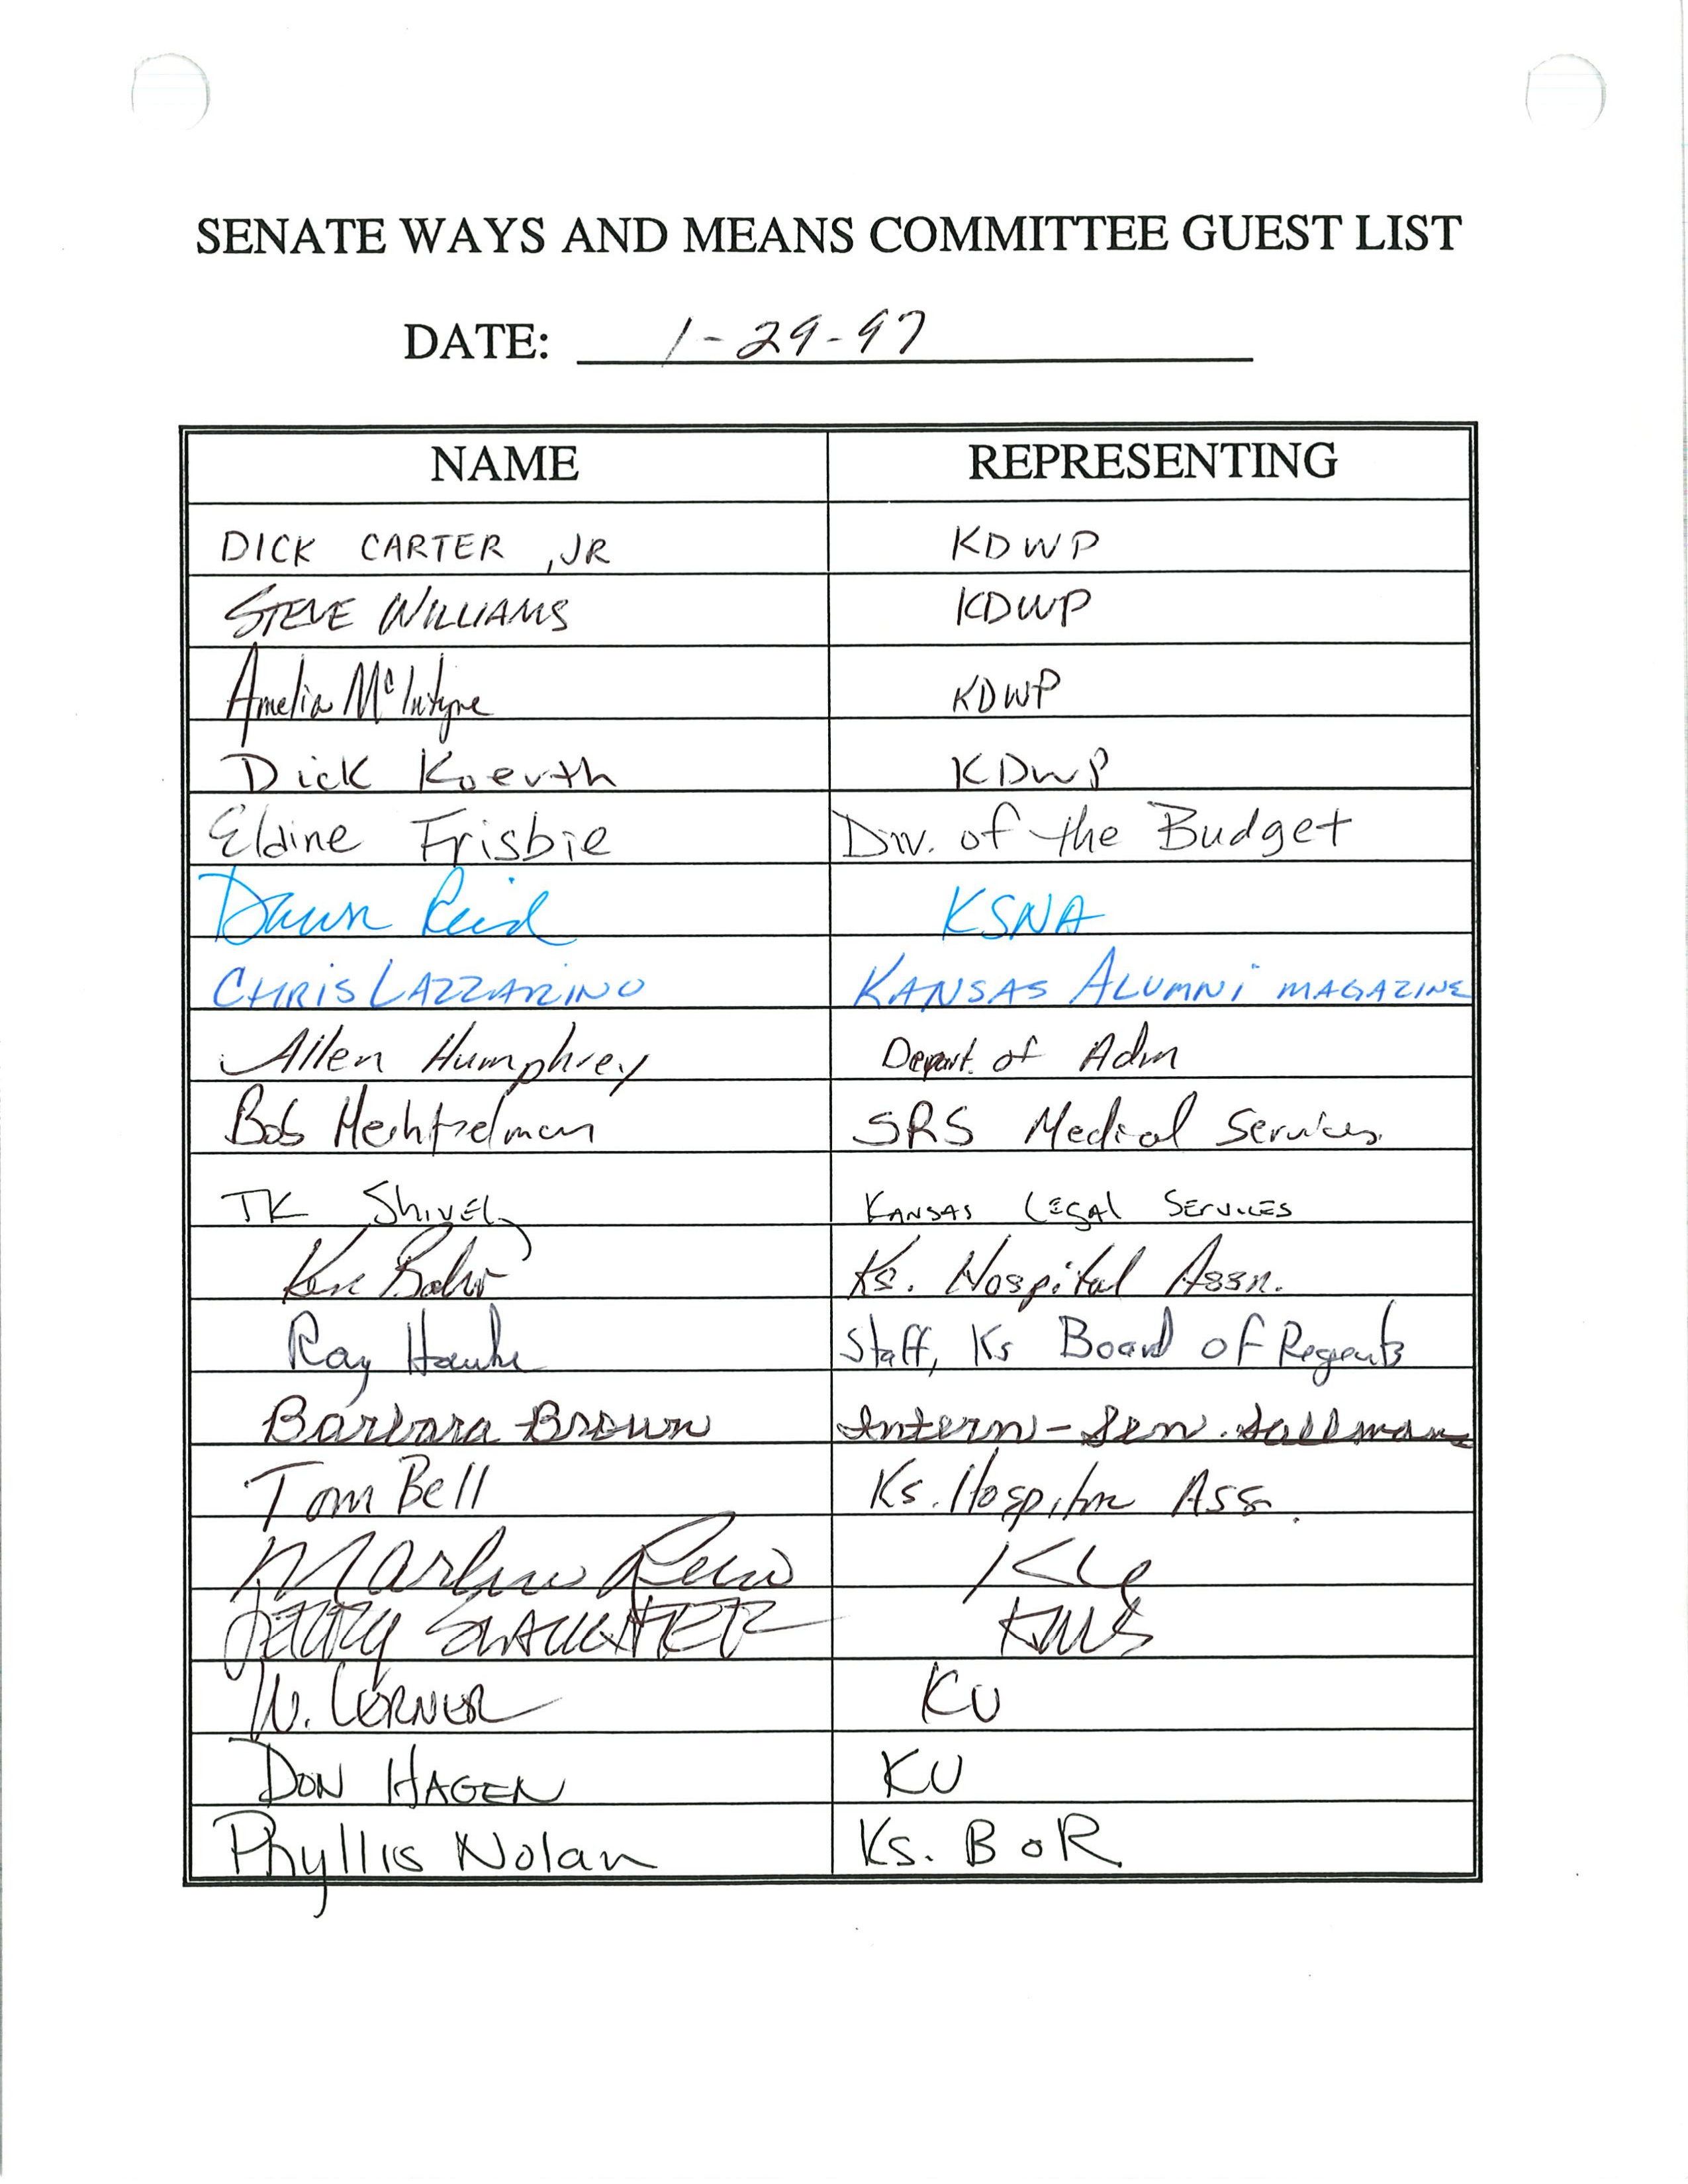 SENATE WAYS AND MEANS COMMITTEE GUEST LIST
DATE: 1-29-97
NAME REPRESENTING
DICK CARTER, JR KDWP
STEVE WILLIAMS KDWP
Amelia McIntyre KDWP
Dick Koerth KDWP
Elaine Frisbie Div. of the Budget
Dawn Reid KSNA
CHRIS LAZZARINO KANSAS ALUMNI MAGAZINE
Allen Humphrey Depart. of Adm
Bob SRS Medical Services
TK Shively KANSAS LEGAL SERVICES
Ken Ks. Hospital Assn.
Ray Hauke Staff, Ks Board of Regents
Barbara Brown Intern - Sen. Sallman
Tom Bell Ks. Hospital Ass.
Marlin Rein KU
JERRY SLAUGHTER KMS
KU
DON HAGEN KU
Phyllis Nolan Ks. BoR